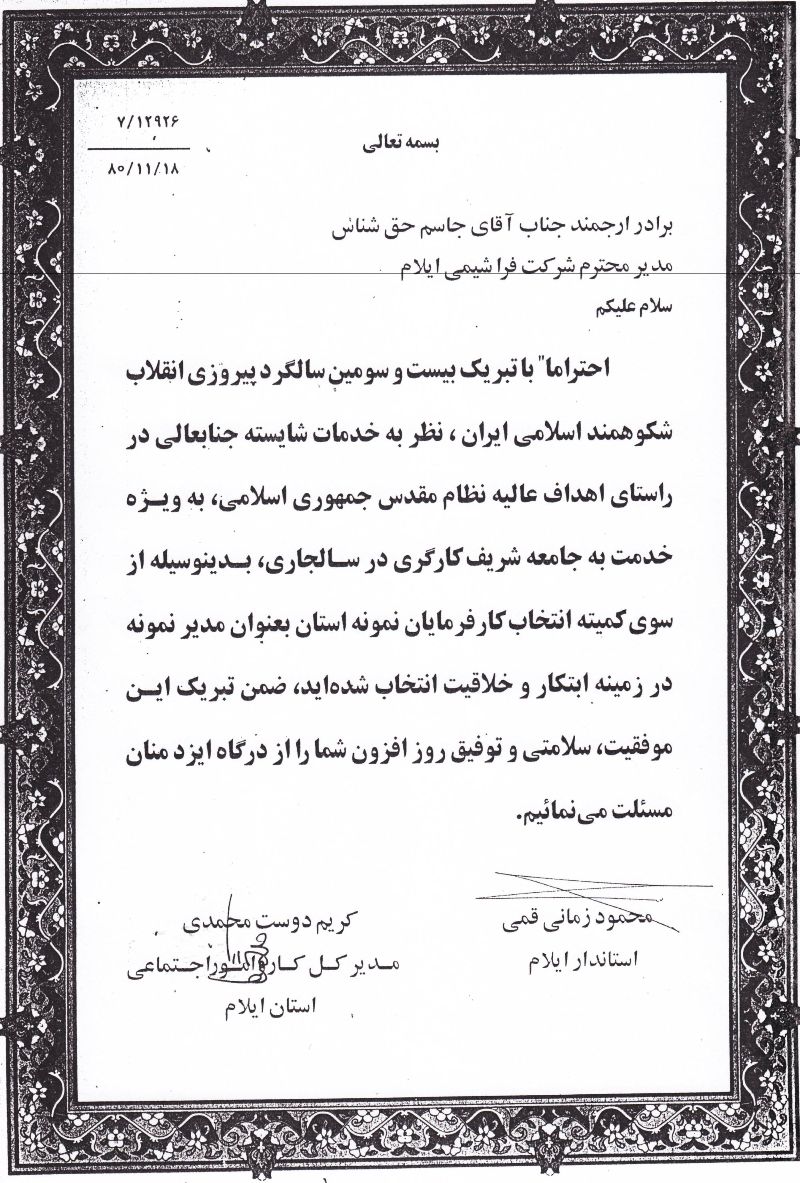 ۷/۱۲۹۲۶
۸۰/۱۱/۱۸
بسمه تعالی
برادر ارجمند جناب آقای جاسم حق شناس
مدیر محترم شرکت فرا شیمی ایلام
سلام علیکم
احتراما" با تبریک بیست و سومین سالگرد پیروزی انقلاب
شکوهمند اسلامی ایران ، نظر به خدمات شایسته جنابعالی در
راستای اهداف عالیه نظام مقدس جمهوری اسلامی، به ویـژه
خدمت به جامعه شریف کارگری در سـالجاری، بـدینوسیله از
سوی کمیته انتخاب کارفرمایان نمونه استان بعنوان مدیر نمونه
در زمینه ابتکار و خلاقیت انتخاب شده‌اید، ضمن تبریک ایـن
موفقیت، سلامتی و توفیق روز افزون شما را از درگاه ایزد منان
مسئلت می‌نمائیم.
محمود زمانی قمی
استاندار ایلام
کریم دوست محمدی
مـدیر کـل کـار و امـور اجـتماعی
استان ایلام